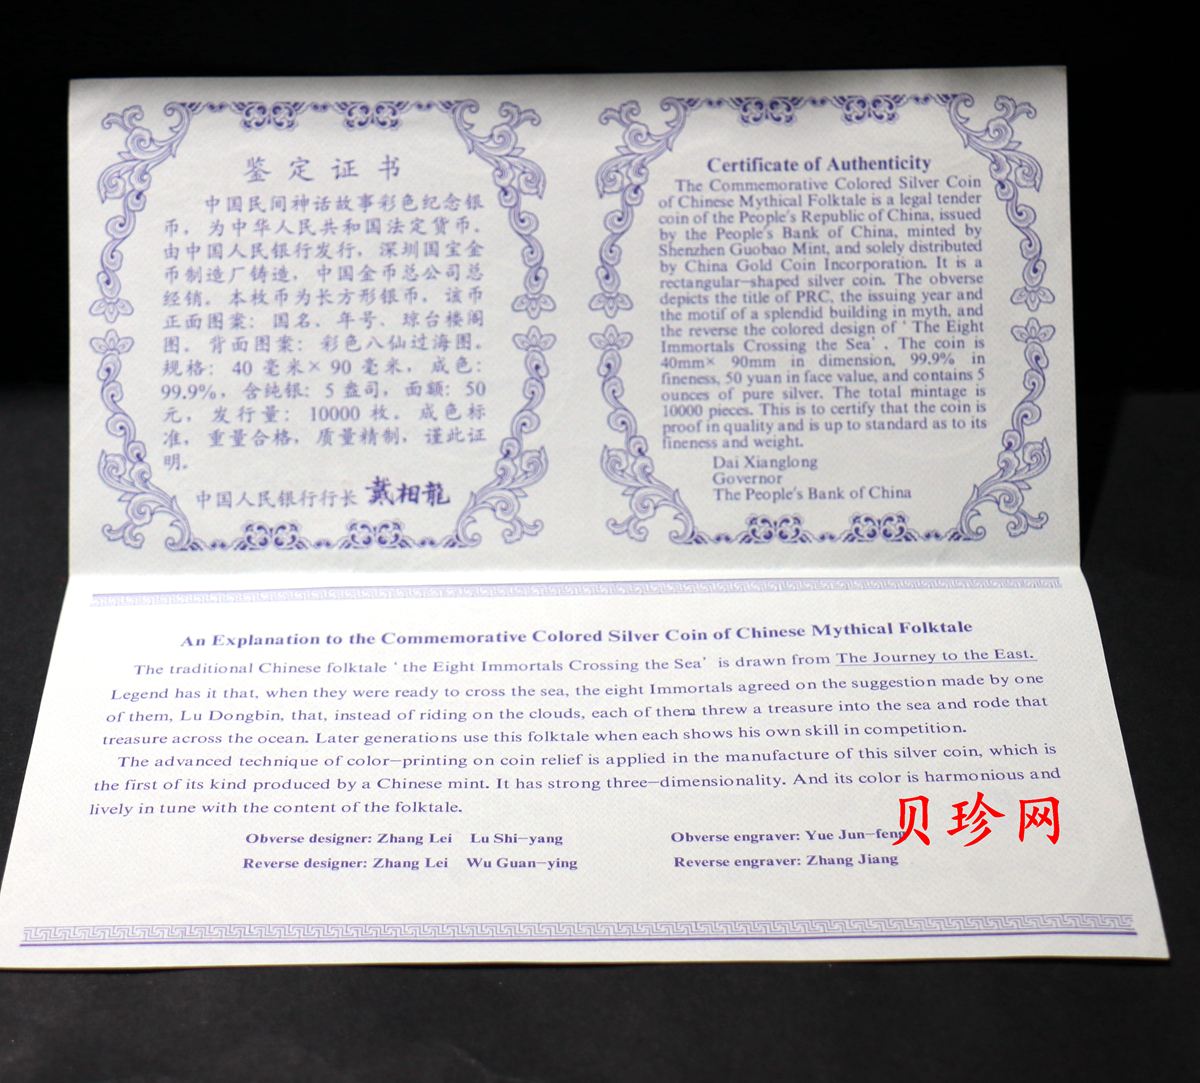 鉴定证书
中国民间神话故事彩色纪念银
币，为中华人民共和国法定货币。
由中国人民银行发行，深圳国宝金
币制造厂铸造，中国金币总公司总
经销。本枚币为长方形银币，该币
正面图案：国名、年号、琼台楼阁
图。背面图案：彩色八仙过海图。
规格：40 毫米×90 毫米，成色：
99.9%，含纯银：5 盎司，面额：50
元，发行量：10000 枚。成色标
准，重量合格，质量精制，谨此证
明。
中国人民银行行长 戴相龍
Certificate of Authenticity
The Commemorative Colored Silver Coin
of Chinese Mythical Folktale is a legal tender
coin of the People's Republic of China, issued
by the People's Bank of China, minted by
Shenzhen Guobao Mint, and solely distributed
by China Gold Coin Incorporation. It is a
rectangular-shaped silver coin. The obverse
depicts the title of PRC, the issuing year and
the motif of a splendid building in myth, and
the reverse the colored design of ‘The Eight
Immortals Crossing the Sea’. The coin is
40mm× 90mm in dimension, 99.9% in
fineness, 50 yuan in face value, and contains 5
ounces of pure silver. The total mintage is
10000 pieces. This is to certify that the coin is
proof in quality and is up to standard as to its
fineness and weight.
Dai Xianglong
Governor
The People's Bank of China
An Explanation to the Commemorative Colored Silver Coin of Chinese Mythical Folktale
The traditional Chinese folktale ‘the Eight Immortals Crossing the Sea’ is drawn from The Journey to the East.
Legend has it that, when they were ready to cross the sea, the eight Immortals agreed on the suggestion made by one
of them, Lu Dongbin, that, instead of riding on the clouds, each of them threw a treasure into the sea and rode that
treasure across the ocean. Later generations use this folktale when each shows his own skill in competition.
The advanced technique of color-printing on coin relief is applied in the manufacture of this silver coin, which is
the first of its kind produced by a Chinese mint. It has strong three-dimensionality. And its color is harmonious and
lively in tune with the content of the folktale.
Obverse designer: Zhang Lei Lu Shi-yang Obverse engraver: Yue Jun-feng
Reverse designer: Zhang Lei Wu Guan-ying Reverse engraver: Zhang Jiang
贝珍网